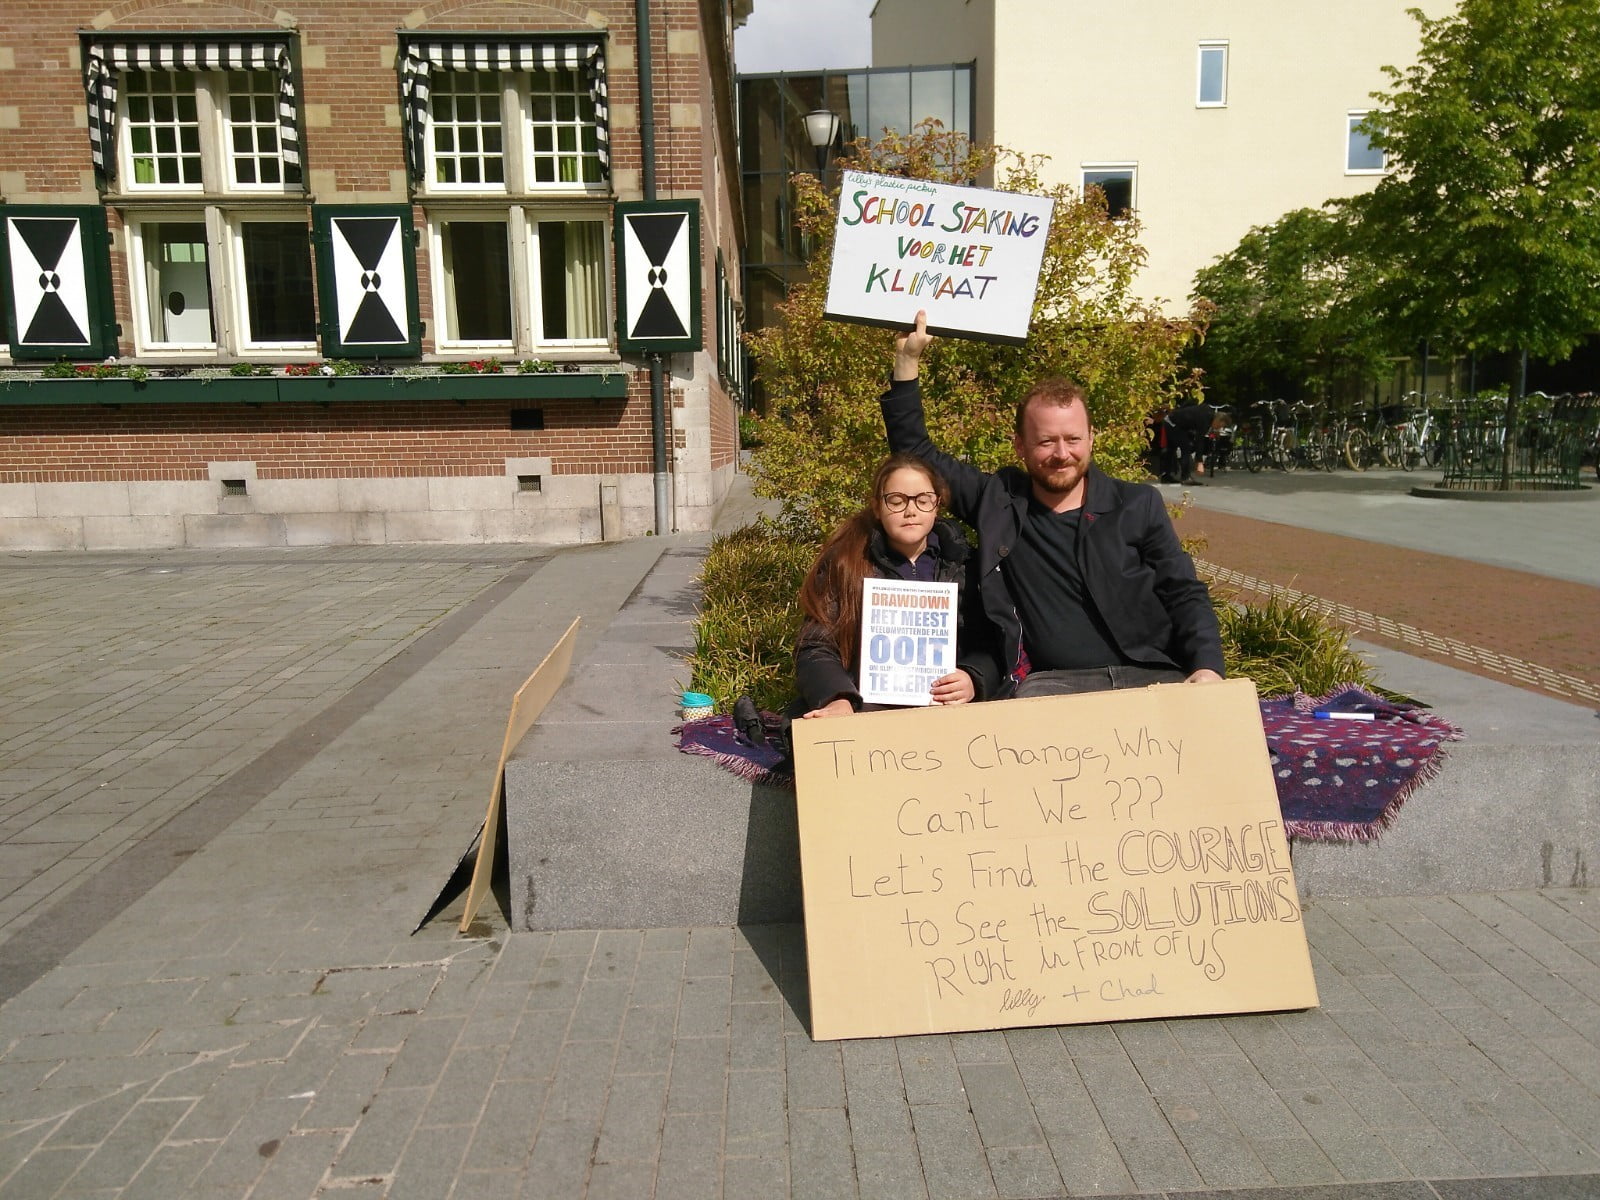 lilly's plastic pickup
SCHOOL STAKING
VOOR HET
KLIMAAT
DRAWDOWN
HET MEEST
VEELOMVATTENDE PLAN
OOIT
TE KEREN
Times Change, Why
Can't We ???
Let's Find the COURAGE
to See the SOLUTIONS
Right in FRONT OF US
lilly + Chad